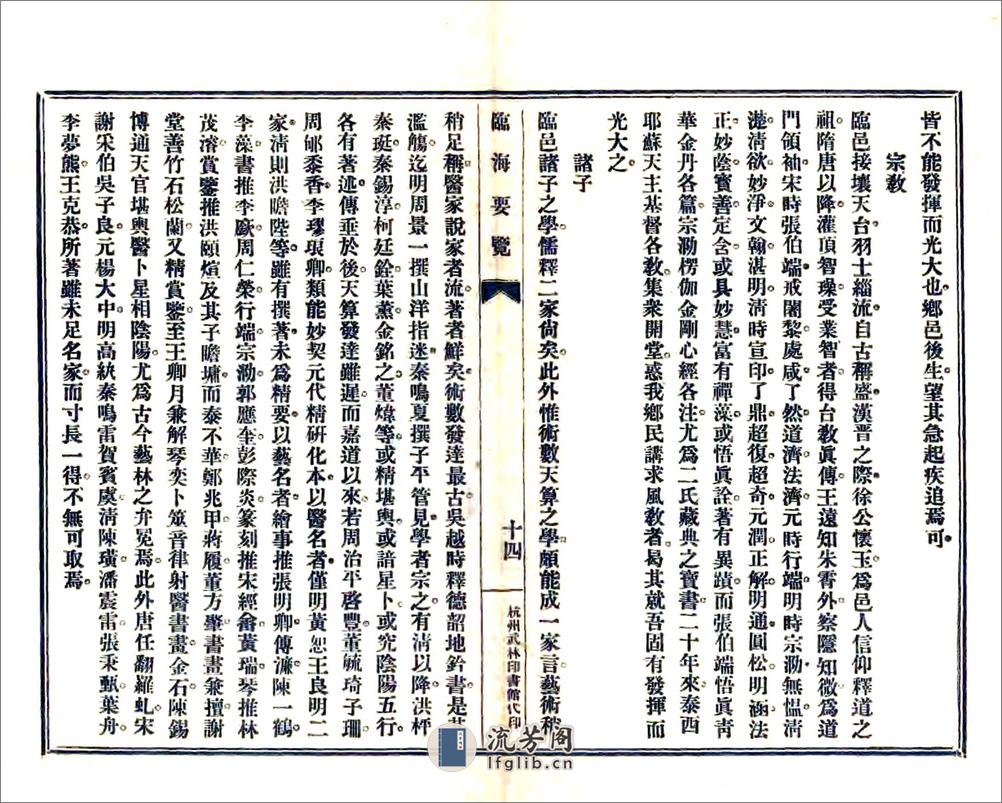 皆不能發揮而光大也鄉邑後生望其急起疾追焉可
宗敎
臨邑接壤天台羽士緇流自古稱盛漢晉之際徐公懷玉爲邑人信仰釋道之
祖隋唐以降灌頂智璪受業智者得台敎眞傳王遠知朱霄外察隱知微爲道
門領袖宋時張伯端戒闍黎處咸了然道濟法濟元時行端明時宗泐無愠淸
濋淸欲妙淨文翰湛明淸時宣印了鼎超復超奇元潤正解明通圓松明涵法
正妙蔭寶善定含或具妙慧富有禪藻或悟眞詮著有異蹟而張伯端悟眞靑
華金丹各篇宗泐楞伽金剛心經各注尤爲二氏藏典之寶書二十年來泰西
耶蘇天主基督各敎集衆開堂惑我鄉民講求風敎者曷其就吾固有發揮而
光大之
諸子
臨邑諸子之學儒釋二家尙矣此外惟術數天算之學頗能成一家言藝術稗
臨海要覽
十四
杭州武林印書館代印
稍足稱醫家說家者流著者鮮矣術數發達最古吳越時釋德韶地鈐書是其
濫觴迄明周景一撰山洋指迷秦鳴夏撰子平管見學者宗之有淸以降洪枰
秦珽秦錫淳柯廷銓葉薰金銘之董煒等或精堪輿或諳星卜或究陰陽五行
各有著述傳垂於後天算發達雖遲而嘉道以來若周治平啓豐董毓琦子珊
周郇黍香李璆琅卿類能妙契元代精硏化本以醫名者僅明黃恕王良明二
家淸則洪瞻陛等雖有撰著未爲精要以藝名者繪事推張明卿傅濂陳一鶴
李藻書推李廞周仁榮行端宗泐郭應奎彭際炎篆刻推宋經畬黃瑞琴推林
茂濬賞鑒推洪頤煊及其子瞻墉而泰不華鄭兆甲蔣履董方犖書畫兼擅謝
堂善竹石松蘭又精賞鑒至王卿月兼解琴奕卜筮音律射醫書畫金石陳錫
博通天官堪輿醫卜星相陰陽尤爲古今藝林之弁冕焉此外唐任翻羅虬宋
謝采伯吳子良元楊大中明高統秦鳴雷賀賓虞淸陳璜潘震雷張秉甄葉舟
李夢熊王克恭所著雖未足名家而寸長一得不無可取焉
流芳阁
lfglib.cn